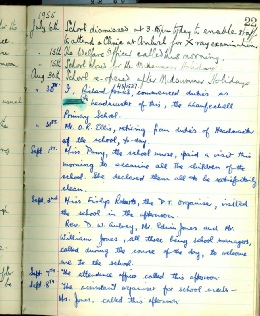 22
1955
July 6th School dismissed at 3.15pm today to enable staff
to attend a Clinic at for X-ray examination
15th The Welfare Officer called this morning.
15th School closes for the Midsummer Holidays
Aug 30th School re-opened after Midsummer Holidays
" 30th I, Richard Jones, commenced duties as
Headmaster of this, the Llanfechell
Primary School.
" 30th Mr. O. R. Ellis, retiring from duties of Headmaster
of the school, to-day.
Sept 1st. Miss Penny, the school nurse, paid a visit this
morning to examine all the children of the
school. She declared them all to be satisfactorily
clean.
Sept 2nd Miss Roberts, the P.T. Organiser, visited
the school in the afternoon.
Rev. D. W. Aubrey, Mr. Edwin Jones and Mr
William Jones, all three being school managers,
called during the course of the day, to welcome
me to the school.
Sept 7th The attendance officer called this afternoon
Sept 8th The assistant for school meals -
Mrs. Jones, called this afternoon